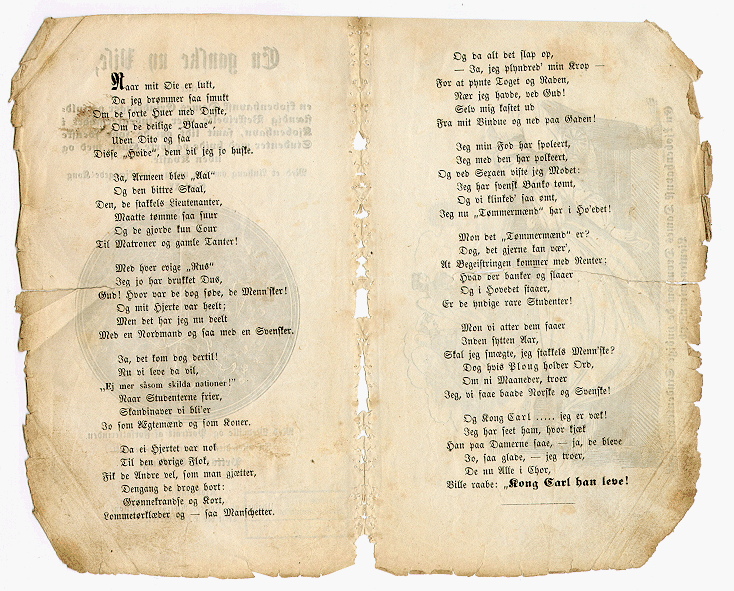 Naar mit Øie er lukt,
Da jeg drømmer saa smukt
Om de sorte Huer med Duske,
Om de deilige „Blaae",
Uden Dito og saa
Disse „Hvide", dem vil jeg jo huske.
Ja, Armeen blev „Aal"
Og den bittre Skaal,
Den, de stakkels Lieutenanter,
Maatte tømme saa snur
Og de gjorde kun Cour
Til Matroner og gamle Tanter!
Med hver evige „Rus"
Jeg jo har drukket Dus,
Gud! Hvor var de dog søde, de Menn'sker!
Og mit Hjerte var heelt;
Men det har jeg nu deelt
Med en Nordmand og saa med en Svensker.
Ja, det kom dog dertil!
Nu vi leve da vil,
„Ej mer såsom skilda nationer!"
Naar Studenterne frier,
Skandinaver vi bli'er
Jo som Ægtemænd og som Koner.
Da ei Hjertet var nok
Til den øvrige Flok,
Fik de Andre vel, som man gjætter,
Dengang de droge bort:
Grønnekrandse og Kort,
Lommetørklæder og — saa Manschetter.
Og da alt det slap op,
— Ja, jeg plyndred' min Krop —
For at pynte Toget og Raden,
Nær jeg havde, ved Gud!
Selv mig kastet ud
Fra mit Vindue og ned paa Gaden!
Jeg min Fod har spoleert,
Jeg med den har polkeert,
Og ved Sexaen viste jeg Modet:
Jeg har svensk Banko tømt,
Og vi klinked' saa ømt,
Jeg nu „Tømmermænd" har i Ho'edet!
Mon det „Tømmermænd" er?
Dog, det gjerne kan vær',
At Begeistringen kommer med Renter:
Hvad der banker og slaaer
Og i Hovedet staaer,
Er de yndige rare Studenter!
Mon vi atter dem faaer
Inden sytten Aar,
Skal jeg smægte, jeg stakkels Menn'ske?
Dog hvis Ploug holder Ord,
Om ni Maaneder, troer
Jeg, vi faae baade Norske og Svenske!
Og Kong Carl ..... jeg er væk!
Jeg har seet ham, hvor kjæk
Han paa Damerne saae, — ja, de bleve
Jo, saa glade, — jeg troer,
De nu Alle i Chor,
Ville raabe: „Kong Carl han leve!